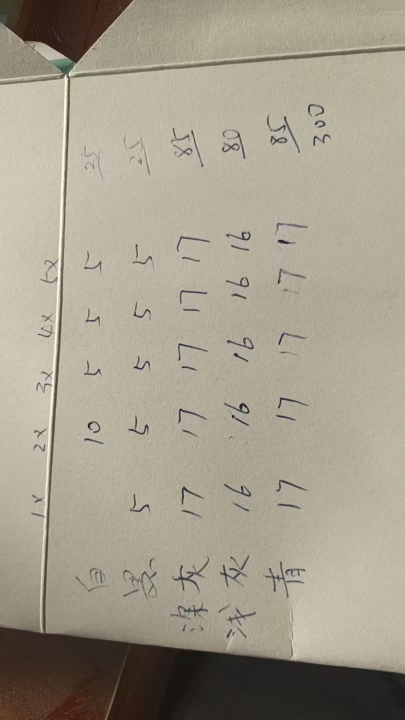 1X 2X 3X 4X 5X
白 10 5 5 5 25
黑 5 5 5 5 5 25
深灰 17 17 17 17 17 85
浅灰 16 16 16 16 16 80
青 17 17 17 17 17 85
300